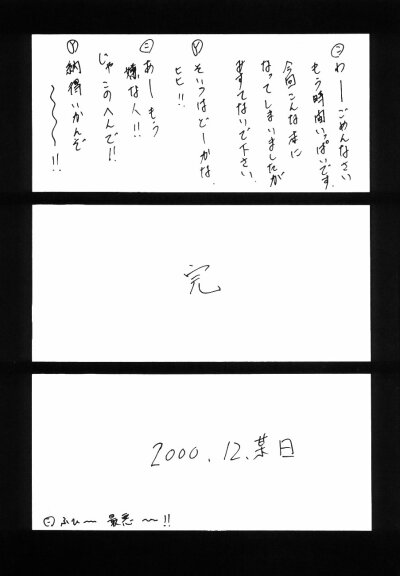 ㊁わーーごめんなさい
もう時間いっぱいです。
今回こんな本に
なってしまいましたが
みすてないで下さい。
Ⓨそいつはどーかな。
ヒヒ!!
㊁あーーもう
嫌な人!!
じゃこのへんで!!
Ⓨ納得いかんぞ
〜〜〜!!
完
2000.12.某日
㊁ふひ〜 最悪 〜!!